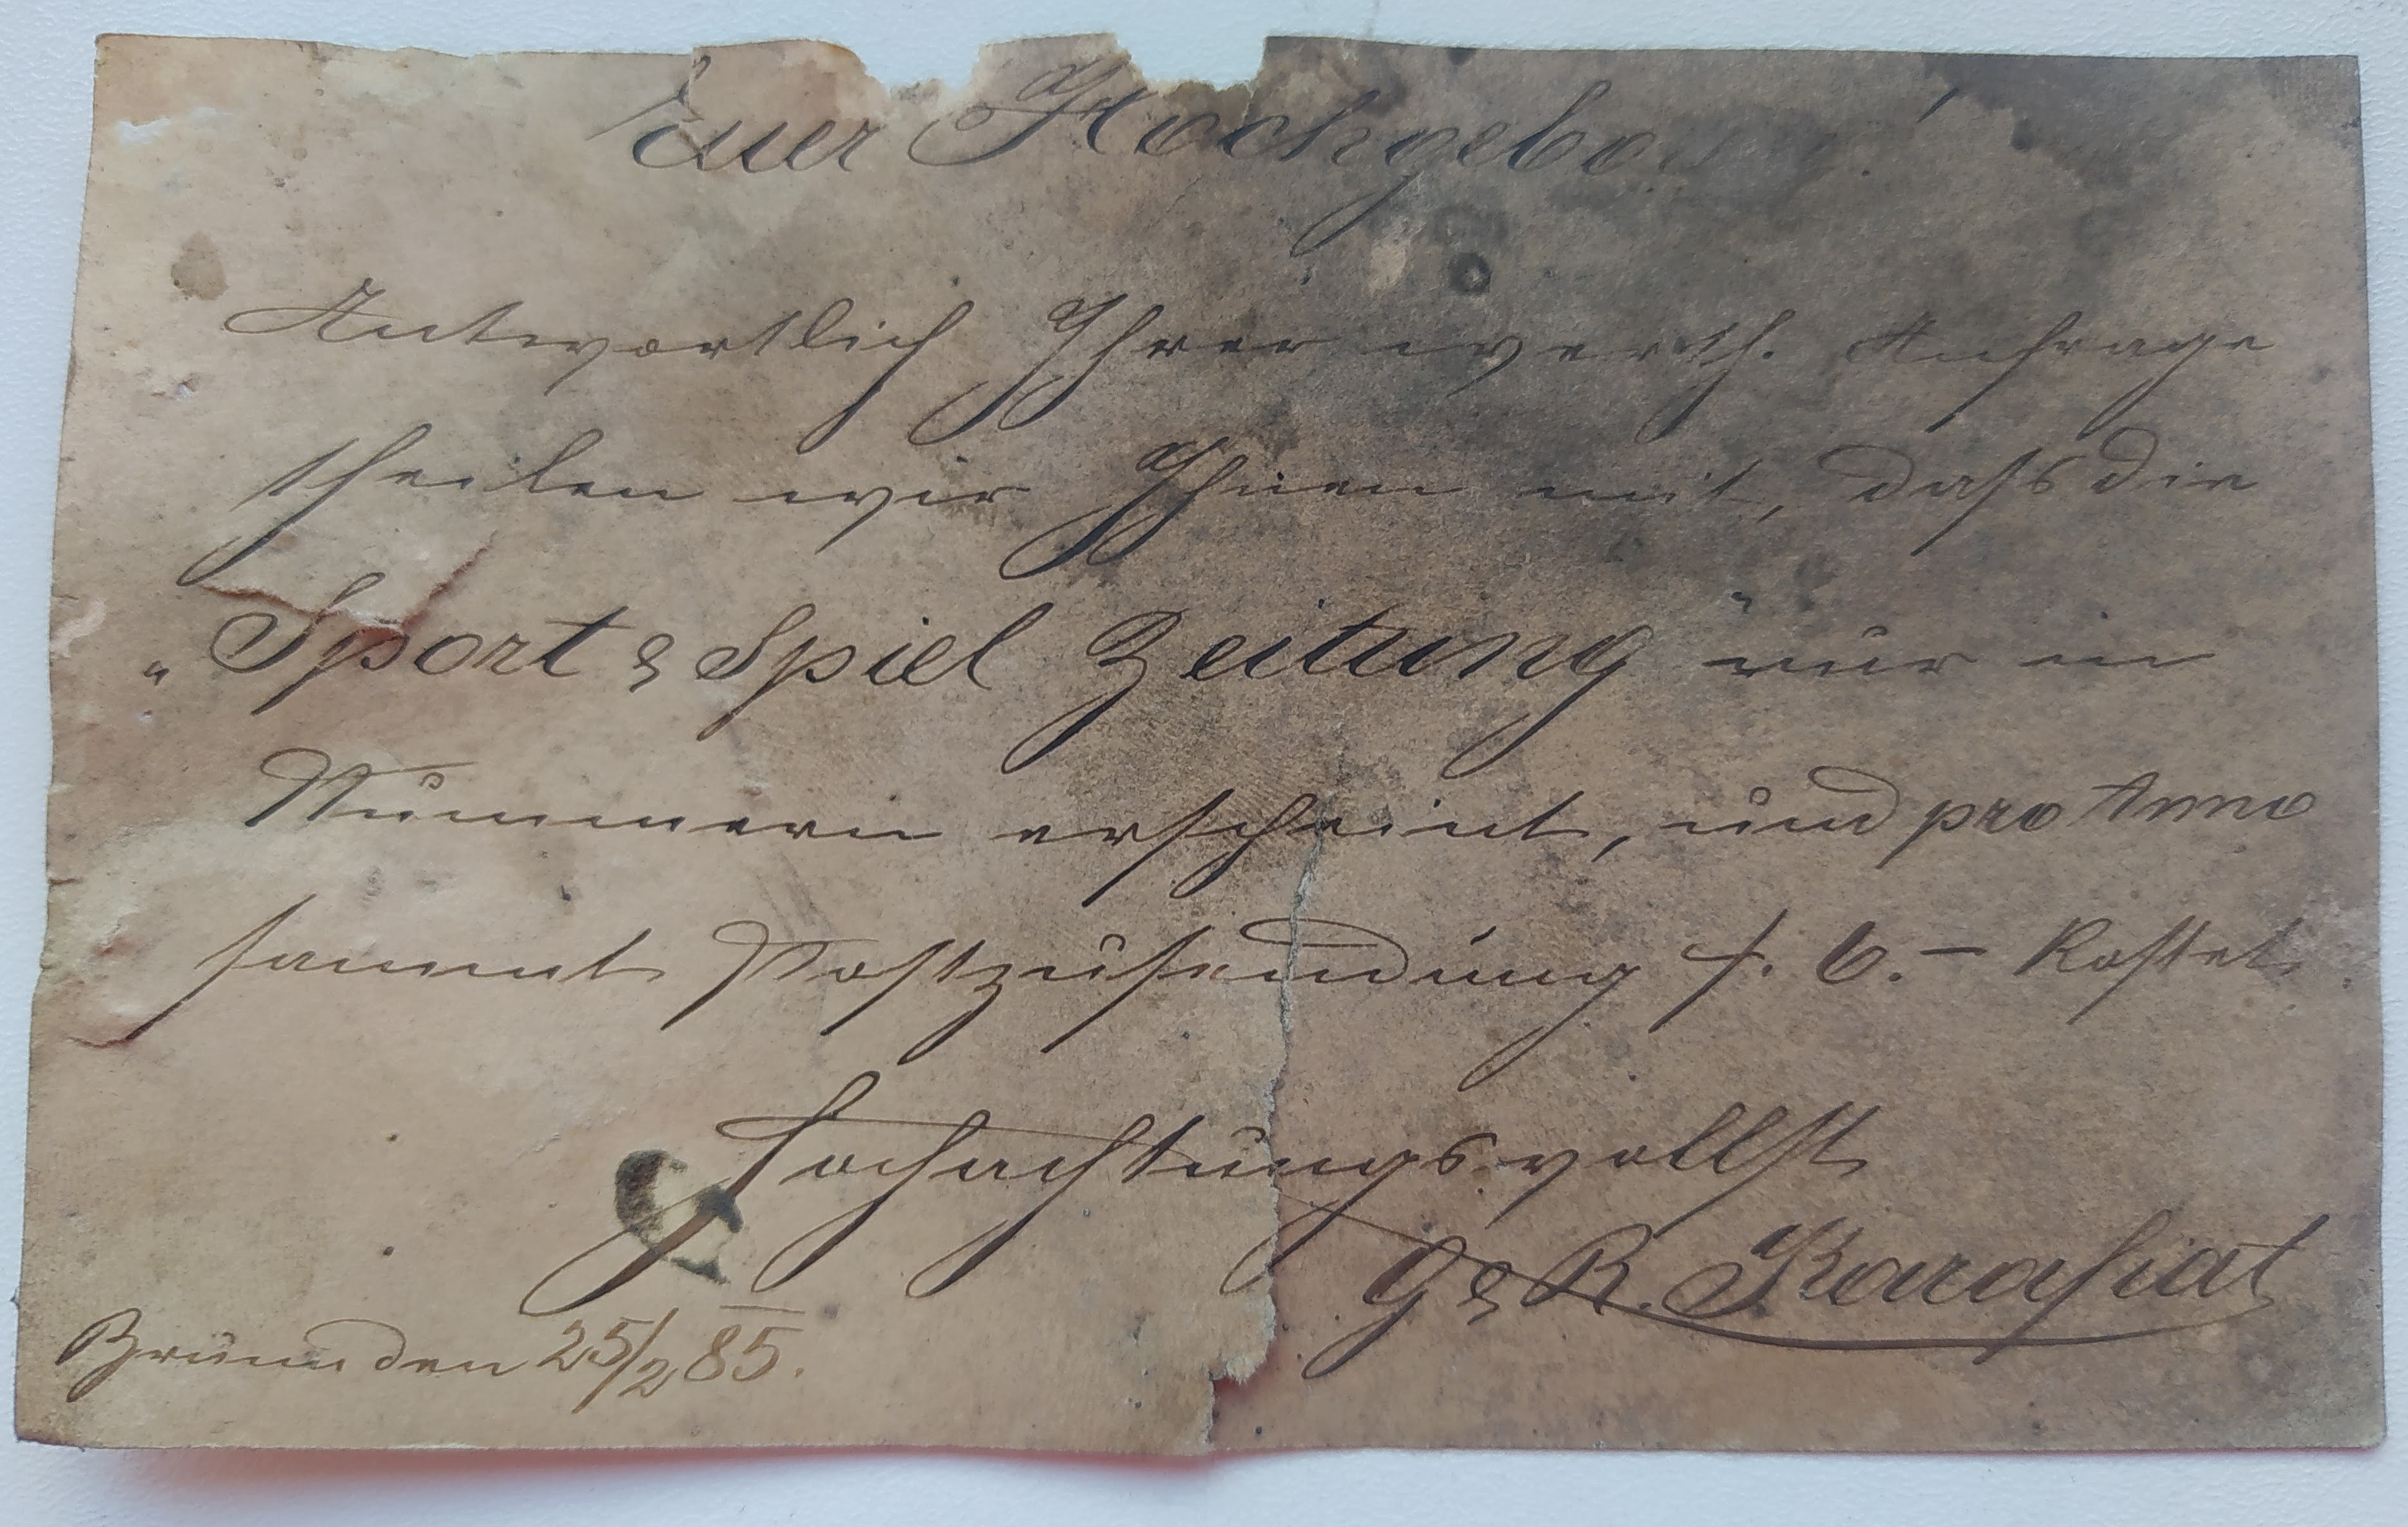 Euer Hochgebor !
Antwortlich Ihrer werth. Anfrage
theilen wir Ihnen mit, dass die
„Sport & Spiel Zeitung" nur in
Nummern erscheint, und pro Anno
sammt Postzusendung f. 6.– kostet.
Hochachtungsvollst
G & R. Karafiat
Brünn den 25/2 85.